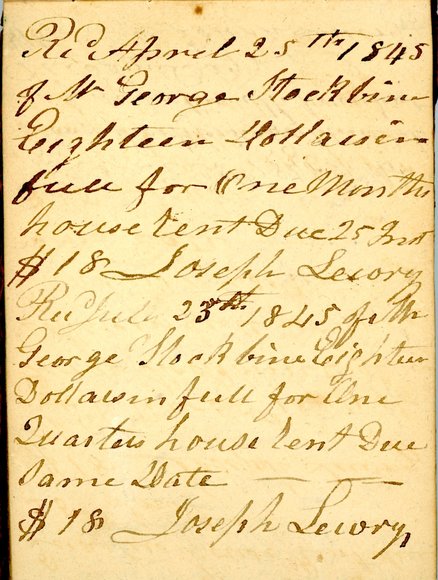 Recd April 25th 1845
of Mr George Stockbine
Eighteen Dollars in
full for One Months
house rent Due 25 Inst
$18 Joseph Lewry
Recd July 25th 1845 of Mr
George Stockbine Eighteen
Dollars in full for One
Quarters house rent Due
Same Date
$18 Joseph Lewry